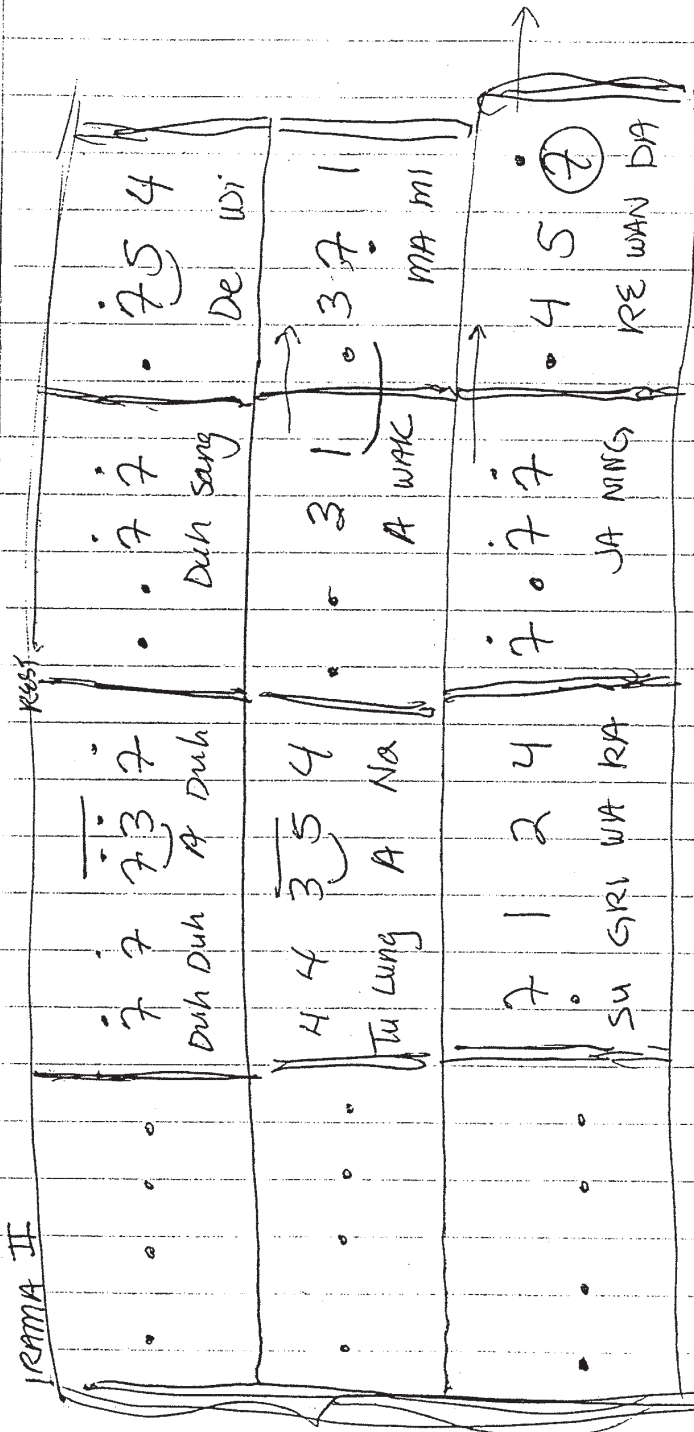 IRAMA II REST
. . . . 7̇ 7̇ 7̇3̇ 7̇ . . 7̇ 7̇ . 7̇5 4
Duh Duh A Duh Duh Sang De Wi
. . . . 4 4 35 4 . . 3 1 . 3 7̣ 1
Tu Lung A Na A WAK MA MI
. . . . 7̣ 1 2 4 7̇ . 7̇ 7̇ . 4 5 7̇
SU GRI WA RA JA NING RE WAN DA